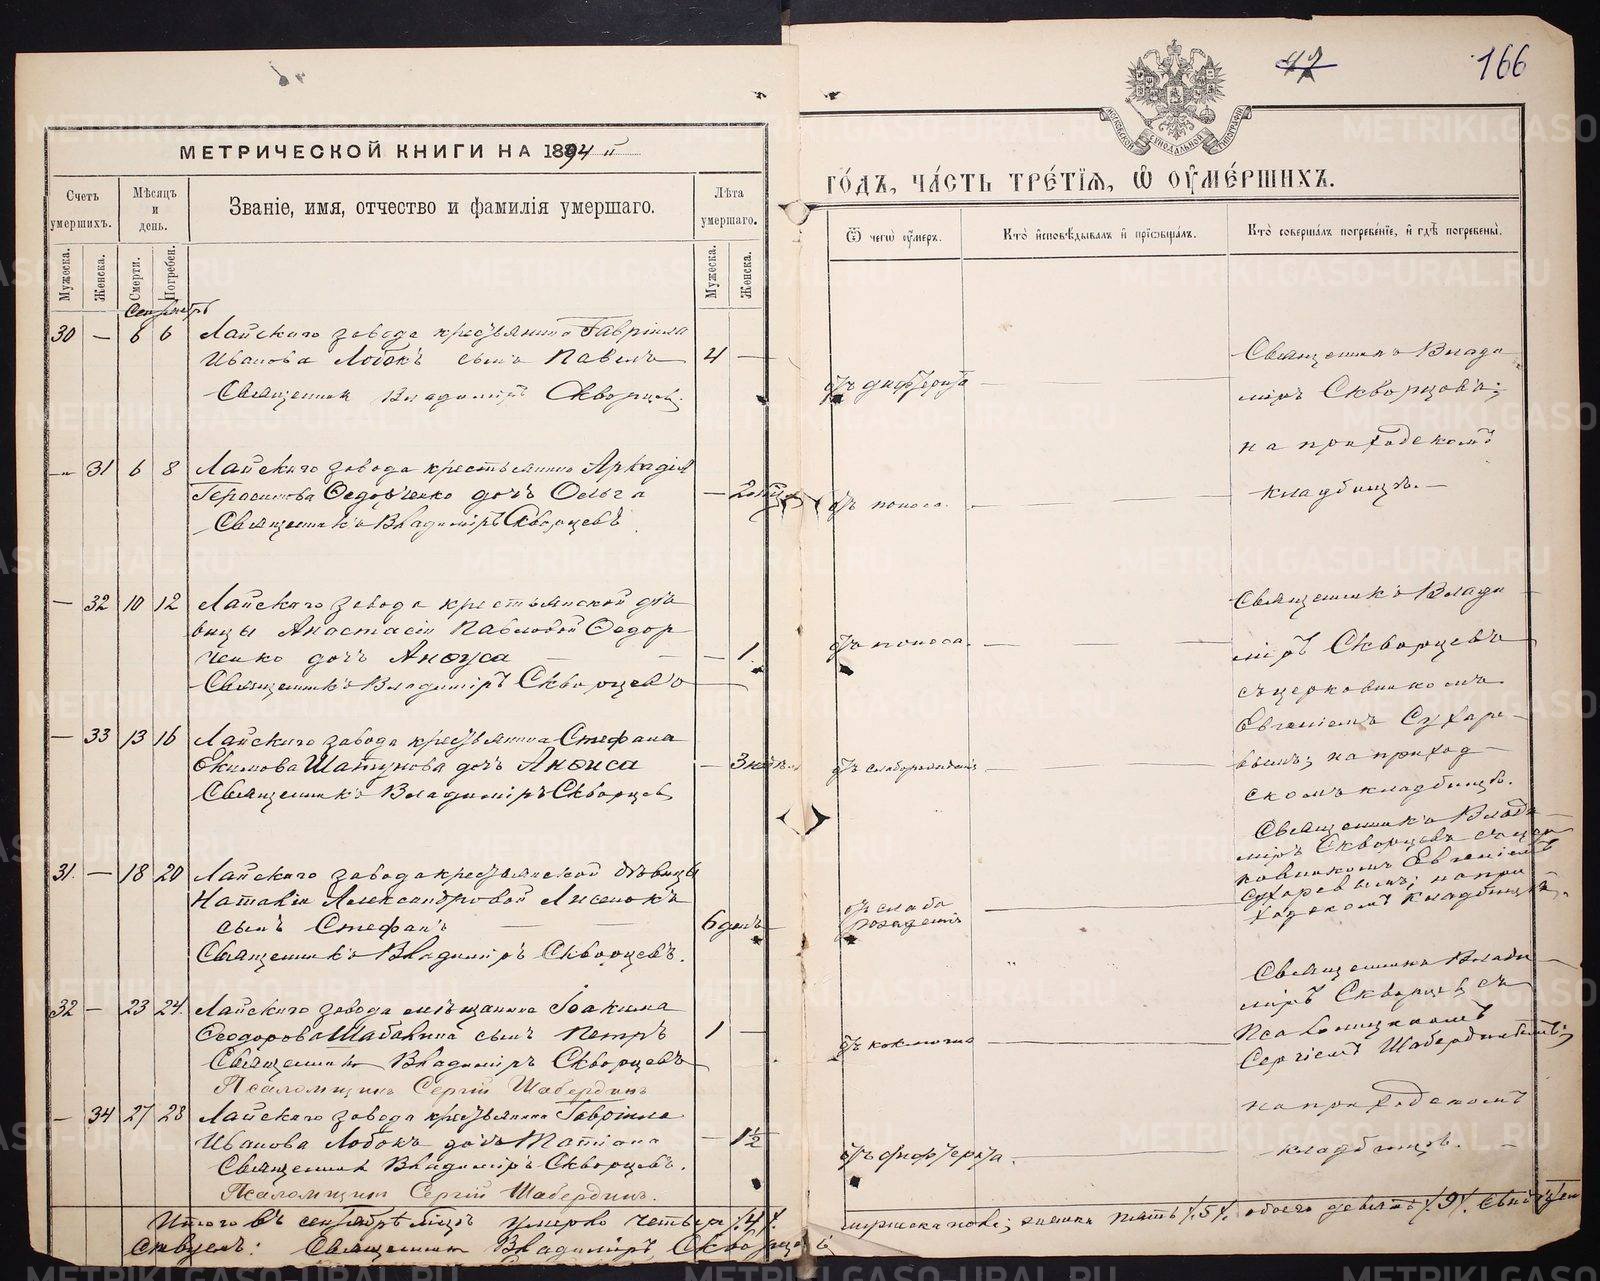 166
МЕТРИЧЕСКОЙ КНИГИ НА 1894
го́дъ, ча́сть тре́тїѧ, ѡ҆ оу҆ме́ршихъ.
МОСКОВСКОЙ СѴНОДАЛЬНОЙ ТИПОГРАФІИ
Счетъ умершихъ.
Мѣсяцъ и день.
Званіе, имя, отчество и фамилія умершаго.
Лѣта умершаго.
Ѿ чегѡ̀ оу҆́меръ.
Кто̀ и҆сповѣ́дывалъ и҆ прїѻбща́лъ.
Кто̀ соверша́лъ погребе́нїе, и҆ гдѣ̀ погребены̀.
Мужеска.
Женска.
Смерти.
Погребен.
Мужеска.
Женска.
Сентябрь
30 — 6 6 Лайскаго завода крестьянина Гавріила
Иванова Лобокъ сынъ Павелъ 4 —
Священникъ Владиміръ Скворцовъ.
отъ дифтерита
Священникъ Влади
міръ Скворцовъ;
на приходскомъ
кладбищѣ.
— 31 6 8 Лайскаго завода крестьянина Аркадія
Герасимова Ѳедорченко дочь Ольга —
Священникъ Владиміръ Скворцовъ
отъ поноса.
— 32 10 12 Лайскаго завода крестьянской дѣ
вицы Анастасіи Павловой Ѳедор
ченко дочь Анѳуса — 1
Священникъ Владиміръ Скворцовъ
отъ поноса.
Священникъ Влади
міръ Скворцовъ
съ церковникомъ
Евгеніемъ Сухаре
вымъ; на приход
скомъ кладбищѣ.
— 33 13 16 Лайскаго завода крестьянина Стефана
Екимова Шатунова дочь Анѳиса — 3
Священникъ Владиміръ Скворцовъ
отъ слаборожденія
31. — 18 20 Лайскаго завода крестьянской дѣвицы
Наталіи Александровой Лисенокъ
сынъ Стефанъ 6 дней
Священникъ Владиміръ Скворцовъ.
отъ слабо
рожденія
Священникъ Влади
міръ Скворцовъ съ цер
ковникомъ Евгеніемъ
Сухаревымъ; на при
ходскомъ кладбищѣ.
32 — 23 24. Лайскаго завода мѣщанина Іоакима
Ѳеодорова Шабалина сынъ Петръ 1 —
Священникъ Владиміръ Скворцовъ
Псаломщикъ Сергій Шабердинъ
отъ коклюша
Священникъ Влади
міръ Скворцовъ съ
Псаломщикомъ
Сергіемъ Шабердинымъ;
на приходскомъ
кладбищѣ.
— 34 27 28 Лайскаго завода крестьянина Гавріила
Иванова Лобокъ дочь Татіана — 1½
Священникъ Владиміръ Скворцовъ.
Псаломщикъ Сергій Шабердинъ.
отъ дифтерита.
Итого въ сентябрѣ мѣсяцѣ умерло четыре /4/.
мужеска пола; женска пять /5/, обоего девять /9/. Свидѣтель
ствуемъ: Священникъ Владиміръ Скворцовъ
METRIKI.GASO-URAL.RU